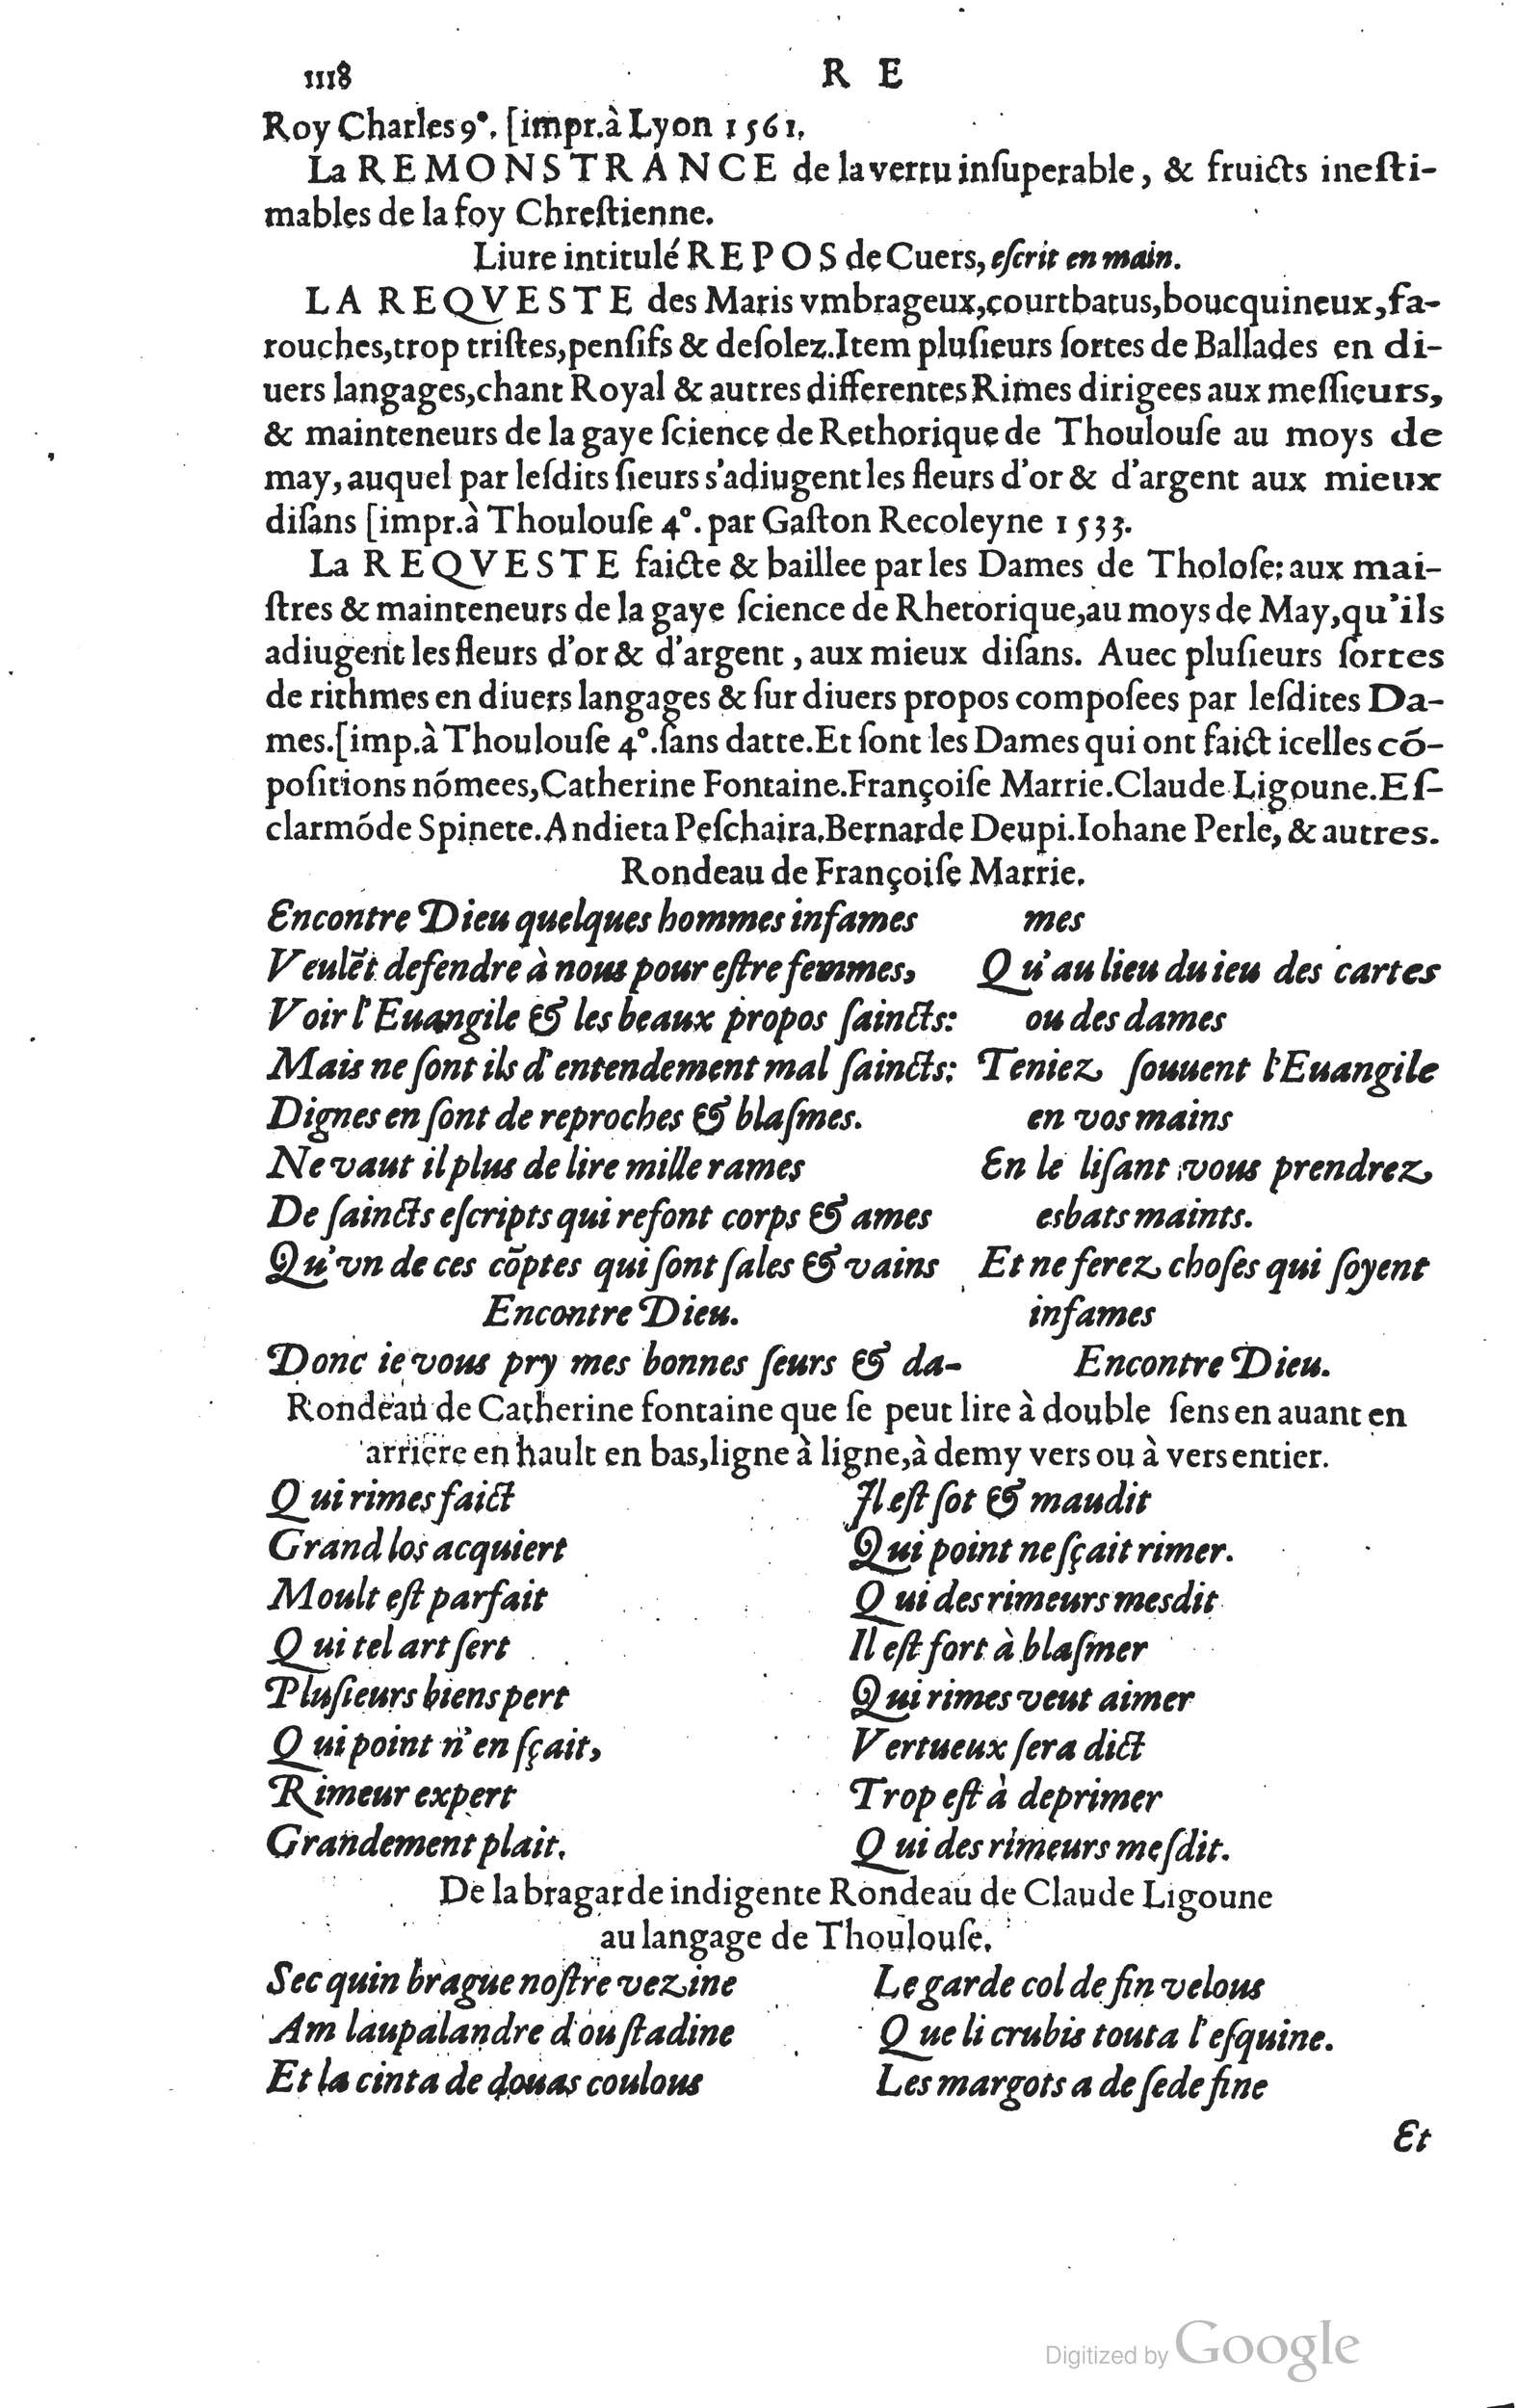 1118 R E
Roy Charles 9°. [impr. à Lyon 1561.
La REMONSTRANCE de la vertu inſuperable, & fruicts ineſti-
mables de la foy Chreſtienne.
Liure intitulé REPOS de Cuers, eſcrit en main.
LA REQVESTE des Maris vmbrageux, courtbatus, boucquineux, fa-
rouches, trop triſtes, penſifs & deſolez. Item pluſieurs ſortes de Ballades en di-
uers langages, chant Royal & autres differentes Rimes dirigees aux meſſieurs,
& mainteneurs de la gaye ſcience de Rethorique de Thoulouſe au moys de
may, auquel par leſdits ſieurs s'adiugent les fleurs d'or & d'argent aux mieux
diſans [impr. à Thoulouſe 4°. par Gaſton Recoleyne 1533.
La REQVESTE faicte & baillee par les Dames de Tholoſe: aux mai-
ſtres & mainteneurs de la gaye ſcience de Rhetorique, au moys de May, qu'ils
adiugent les fleurs d'or & d'argent, aux mieux diſans. Auec pluſieurs ſortes
de rithmes en diuers langages & ſur diuers propos compoſees par leſdites Da-
mes. [imp. à Thoulouſe 4°. ſans datte. Et ſont les Dames qui ont faict icelles cõ-
poſitions nõmees, Catherine Fontaine. Françoiſe Marrie. Claude Ligoune. Eſ-
clarmõde Spinete. Andieta Peſchaira. Bernarde Deupi. Iohane Perle, & autres.
Rondeau de Françoiſe Marrie.
Encontre Dieu quelques hommes infames
Veulẽt defendre à nous pour eſtre femmes,
Voir l'Euangile & les beaux propos ſaincts:
Mais ne ſont ils d'entendement mal ſaincts:
Dignes en ſont de reproches & blaſmes.
Ne vaut il plus de lire mille rames
De ſaincts eſcripts qui refont corps & ames
Qu'vn de ces cõptes qui ſont ſales & vains
Encontre Dieu.
Donc ie vous pry mes bonnes ſeurs & da-
mes
Qu'au lieu du ieu des cartes
ou des dames
Teniez ſouuent l'Euangile
en vos mains
En le liſant vous prendrez
esbats maints.
Et ne ferez choſes qui ſoyent
infames
Encontre Dieu.
Rondeau de Catherine fontaine que ſe peut lire à double ſens en auant en
arriere en hault en bas, ligne à ligne, à demy vers ou à vers entier.
Qui rimes faict
Grand los acquiert
Moult eſt parfait
Qui tel art ſert
Pluſieurs biens pert
Qui point n'en ſçait,
Rimeur expert
Grandement plait.
Il eſt ſot & maudit
Qui point ne ſçait rimer.
Qui des rimeurs mesdit
Il eſt fort à blaſmer
Qui rimes veut aimer
Vertueux ſera dict
Trop eſt à deprimer
Qui des rimeurs meſdit.
De la bragarde indigente Rondeau de Claude Ligoune
au langage de Thoulouſe.
Sec quin brague noſtre vezine
Am laupalandre d'ouſtadine
Et la cinta de douas coulous
Le garde col de fin velous
Que li crubis touta l'eſquine.
Les margots a de ſede fine
Et
Digitized by Google